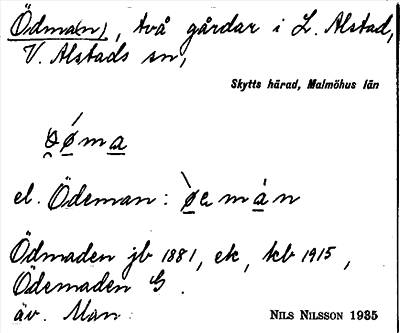 Ödma(n), två gårdar i L. Alstad,
V. Alstads sn,
Skytts härad, Malmöhus län
el. Ödeman:
Ödmaden jb 1881, ek, kb 1915,
Ödemaden G.
äv. Man
NILS NILSSON 1935